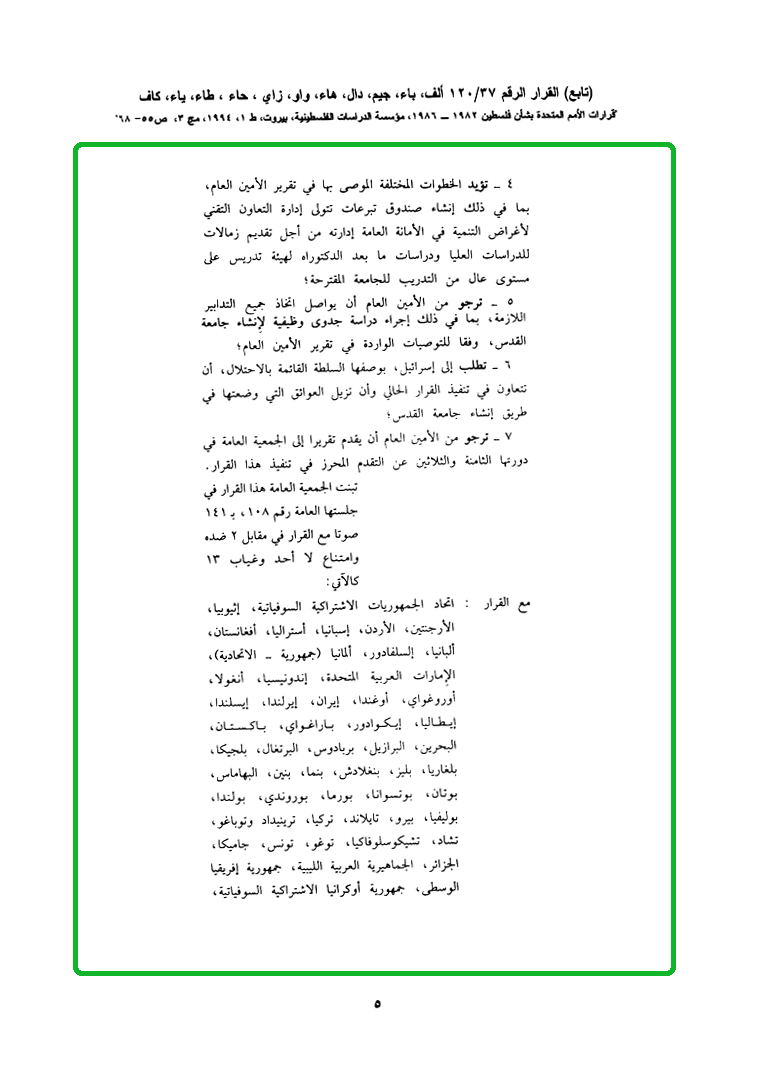 (تابع) القرار الرقم ١٢٠/٣٧ ألف، باء، جيم، دال، هاء، واو، زاي ، حاء ، طاء، ياء، كاف
قرارات الأمم المتحدة بشأن فلسطين ١٩٨٢ ــ ١٩٨٦، مؤسسة الدراسات الفلسطينية، بيروت، ط ١، ١٩٩٤، مج ٣، ص٥٥- ٦٨.
٤ ــ تؤيد الخطوات المختلفة الموصى بها في تقرير الأمين العام،
بما في ذلك إنشاء صندوق تبرعات تتولى إدارة التعاون التقني
لأغراض التنمية في الأمانة العامة إدارته من أجل تقديم زمالات
للدراسات العليا ودراسات ما بعد الدكتوراه لهيئة تدريس على
مستوى عال من التدريب للجامعة المقترحة؛
٥ ــ ترجو من الأمين العام أن يواصل اتخاذ جميع التدابير
اللازمة، بما في ذلك إجراء دراسة جدوى وظيفية لإنشاء جامعة
القدس، وفقا للتوصيات الواردة في تقرير الأمين العام؛
٦ ــ تطلب إلى إسرائيل، بوصفها السلطة القائمة بالاحتلال، أن
تتعاون في تنفيذ القرار الحالي وأن تزيل العوائق التي وضعتها في
طريق إنشاء جامعة القدس؛
٧ ــ ترجو من الأمين العام أن يقدم تقريرا إلى الجمعية العامة في
دورتها الثامنة والثلاثين عن التقدم المحرز في تنفيذ هذا القرار.
تبنت الجمعية العامة هذا القرار في
جلستها العامة رقم ١٠٨، بـ ١٤١
صوتا مع القرار في مقابل ٢ ضده
وامتناع لا أحد وغياب ١٣
كالآتي:
مع القرار : اتحاد الجمهوريات الاشتراكية السوفياتية، إثيوبيا،
الأرجنتين، الأردن، إسبانيا، أستراليا، أفغانستان،
ألبانيا، إلسلفادور، ألمانيا (جمهورية ــ الاتحادية)،
الإمارات العربية المتحدة، إندونيسيا، أنغولا،
أوروغواي، أوغندا، إيران، إيرلندا، إيسلندا،
إيطاليا، إيكوادور، باراغواي، باكستان،
البحرين، البرازيل، بربادوس، البرتغال، بلجيكا،
بلغاريا، بليز، بنغلادش، بنما، بنين، البهاماس،
بوتان، بوتسوانا، بورما، بوروندي، بولندا،
بوليفيا، بيرو، تايلاند، تركيا، ترينيداد وتوباغو،
تشاد، تشيكوسلوفاكيا، توغو، تونس، جاميكا،
الجزائر، الجماهيرية العربية الليبية، جمهورية إفريقيا
الوسطى، جمهورية أوكرانيا الاشتراكية السوفياتية،
٥